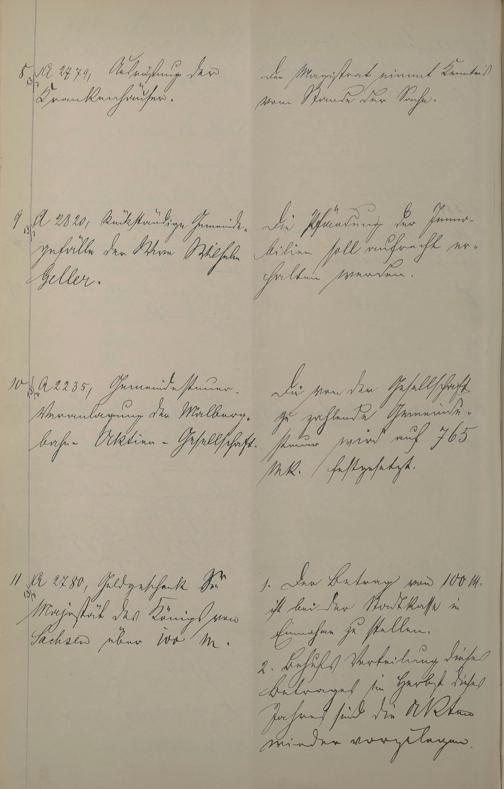 8 A 2779, Ausrüstung der
Krankenhäuser.
Der Magistrat nimmt Kenntnis
vom Stande der Sache.
9 A 2820, Rückständige Gemeinde-
gefälle der Wwe Wilhelm
Geller.
Die Pfändung der Immo-
bilien soll aufrecht er-
halten werden.
10 A 2235, Gemeindesteuer-
Veranlagung der Malberg-
bahn-Aktien-Gesellschaft.
Die von der Gesellschaft
zu zahlende Gemeinde-
steuer wird auf 765
Mk. festgesetzt.
11 A 2780, Geldgeschenk Sr
Majestät des Königs von
Sachsen über 100 M.
1. Der Betrag von 100 M.
ist bei der Stadtkasse in
Einnahme zu stellen.
2. Behufs Verteilung dieses
Betrages im Herbst dieses
Jahres sind die Akten
wieder vorzulegen.